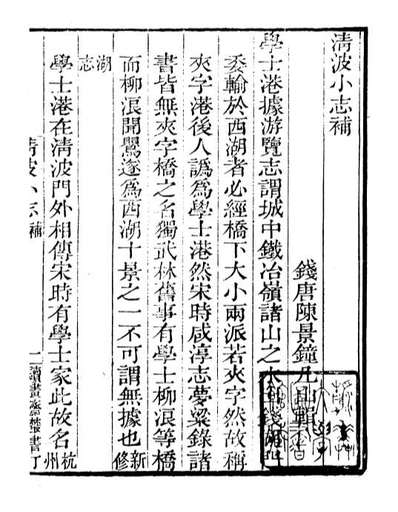 清波小志補
錢唐陳景鐘几山輯
學士港據游覽志謂城中鐵冶嶺諸山之水
委輸於西湖者必經橋下大小兩派若夾字然故稱
夾字港後人譌爲學士港然宋時咸淳志夢粱錄諸
書皆無夾字橋之名獨武林舊事有學士柳浪等橋
而柳浪聞鶯遂爲西湖十景之一不可謂無據也新修
湖志
學士港在清波門外相傳宋時有學士家此故名杭州
清波小志補
一讀畫齋叢書丁